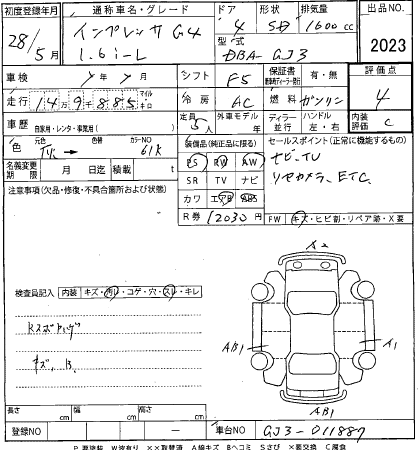 初度登録年月 通称車名・グレード ドア 形状 排気量 出品NO
28/5月 インプレッサ G4 1.6i-L 4 SD 1600cc 2023
型式 DBA-GJ3
車検 年 月 シフト F5 保証書 有・無 評価点
走行 14万9千885 マイル キロ 冷房 AC 燃料 ガソリン 4
車歴 自家用・レンタ・事業用( ) 定員 5人 外車モデル 年 ディーラー 並行 ハンドル 左・右 内装評価 C
色 色替 カラーNO 61K
装備品(純正品に限る) セールスポイント(正常に機能するもの)
PS PW AW ナビ、TV
名義変更期限 月 日迄 積載 t SR TV ナビ リヤカメラ、ETC.
注意事項(欠品・修復・不具合箇所および状態) カワ エアB ABS
R券 12030円 FW キズ・ヒビ割・リペア跡・X要
A2
検査員記入 内装 キズ・汚レ・コゲ・穴・スレ・キレ
キズ、B.
AB1 A1
AB1
長さ cm 幅 cm 高さ cm
登録NO － 車台NO GJ3-011887
P 要塗装 W波有り XX取替済 A線キズ Bヘコミ Sサビ X要交換 C腐食